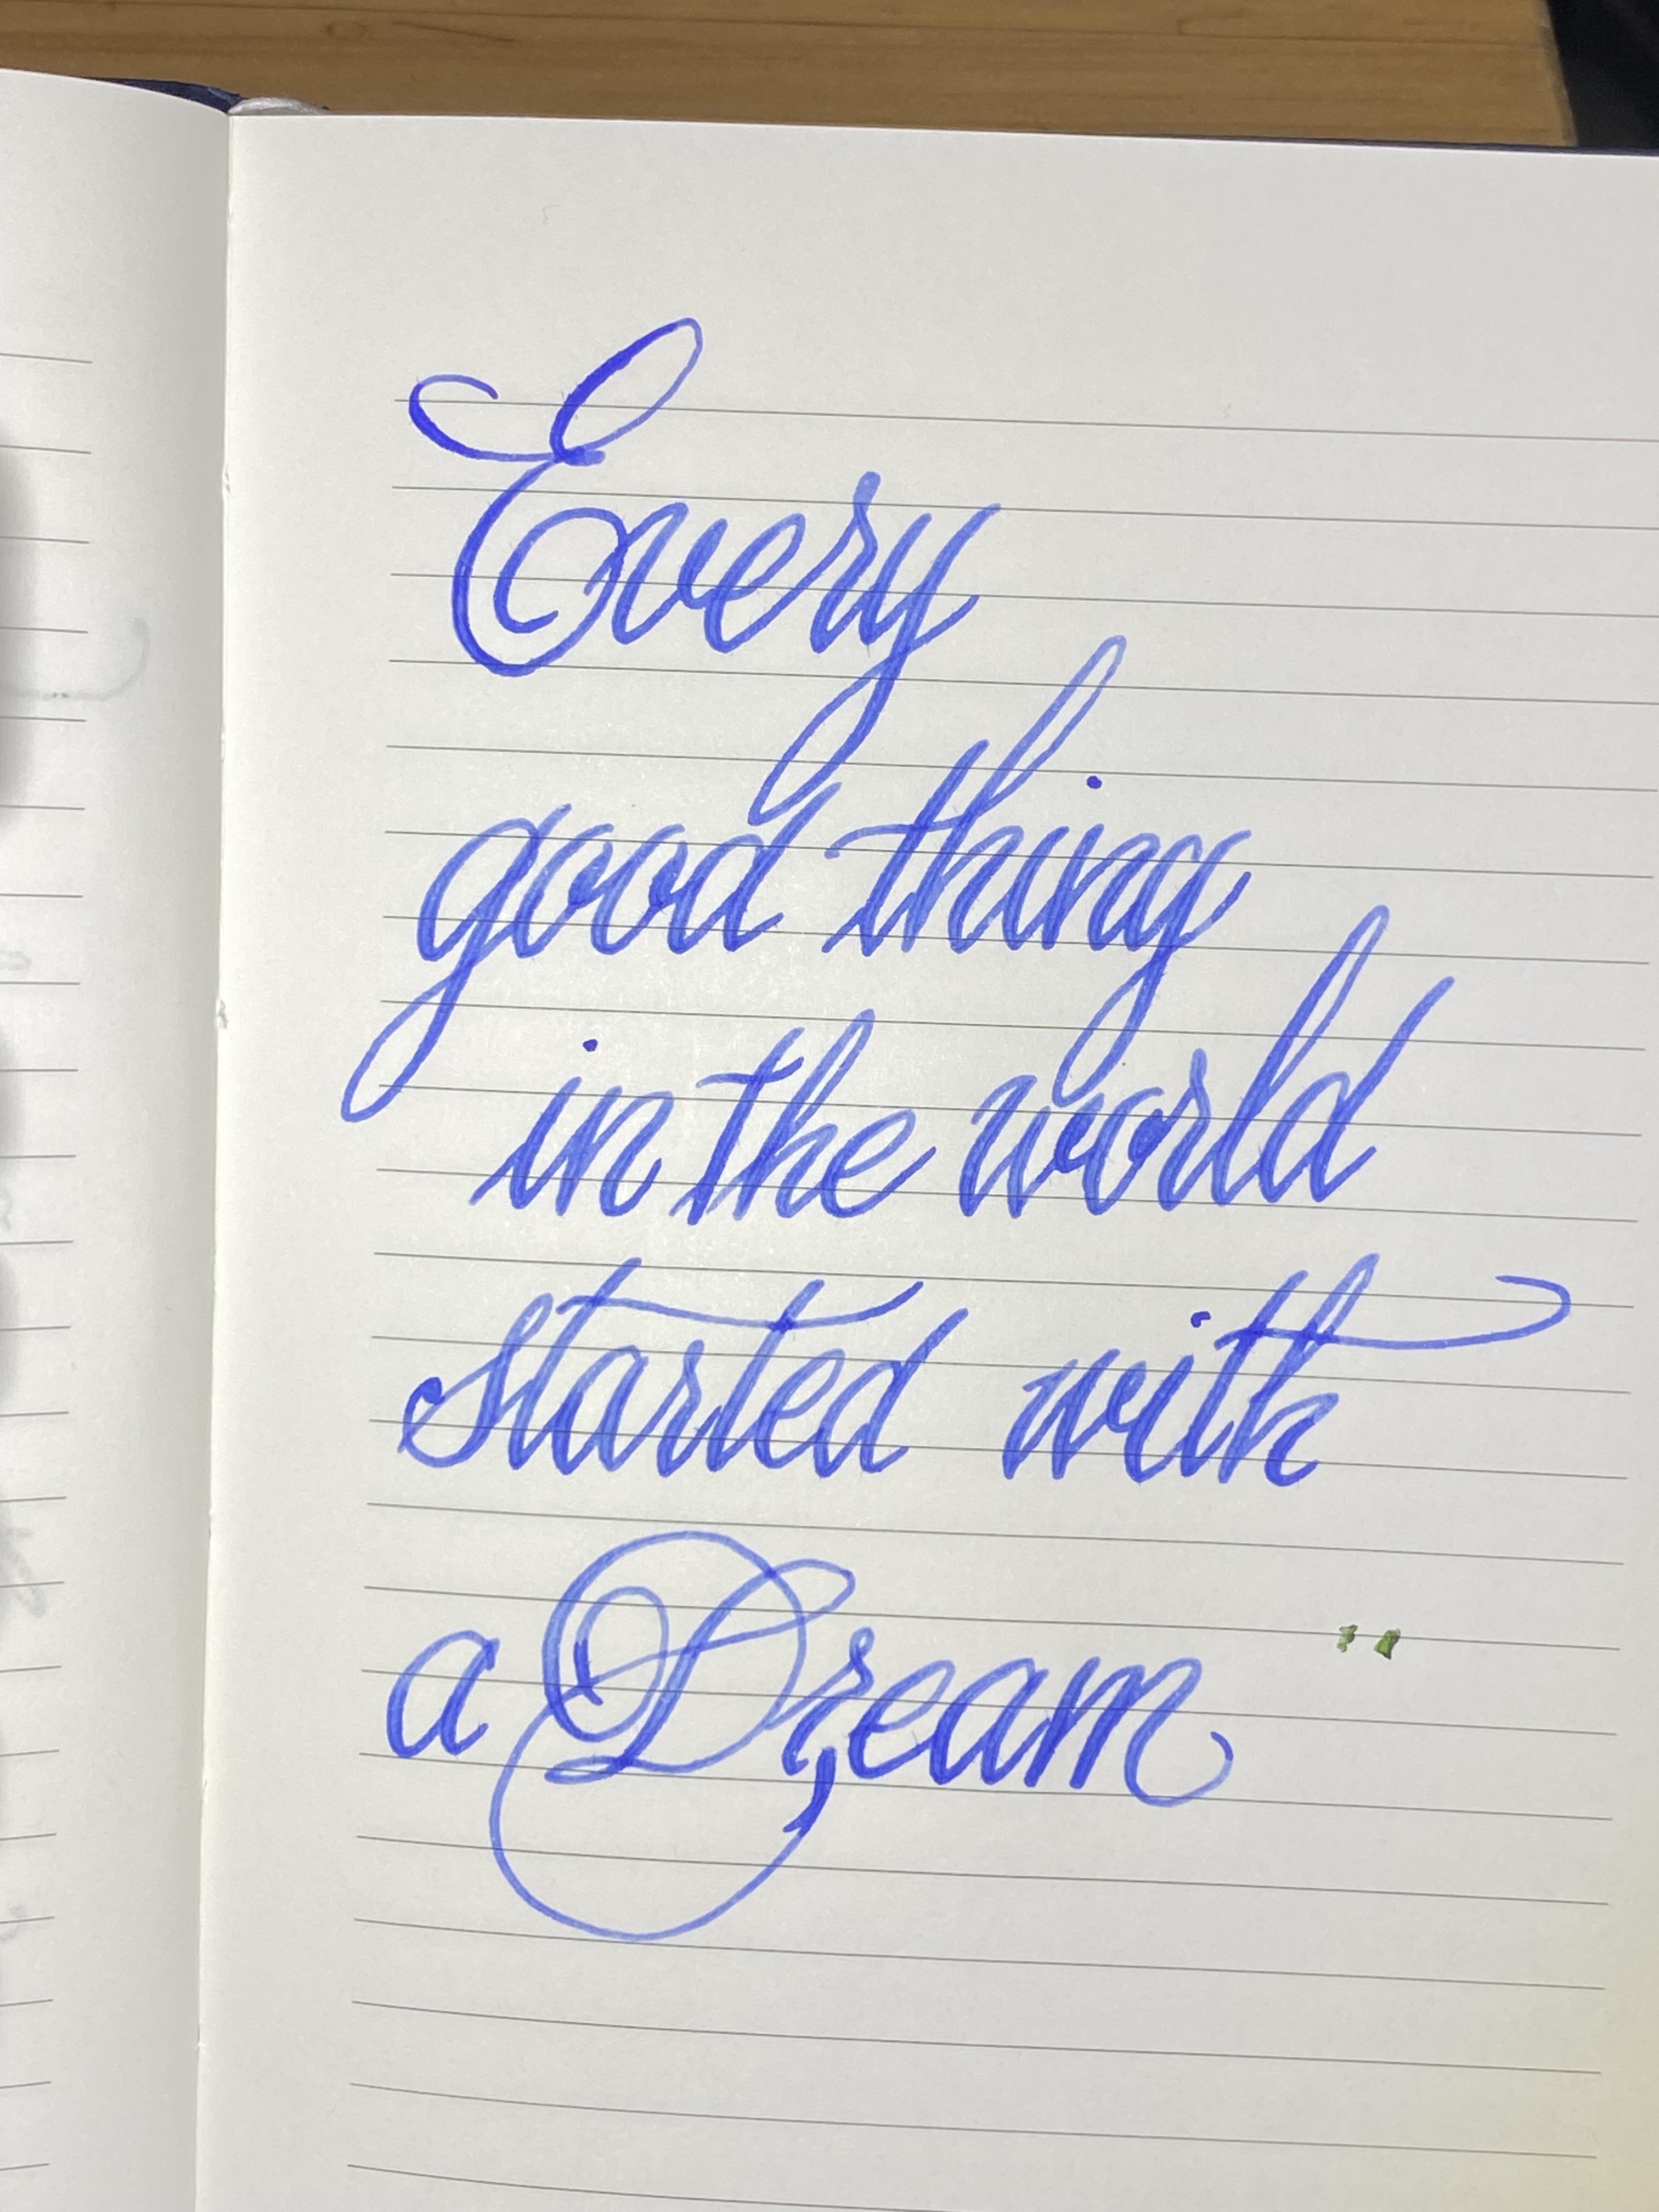 Every
good thing
in the world
started with
a Dream